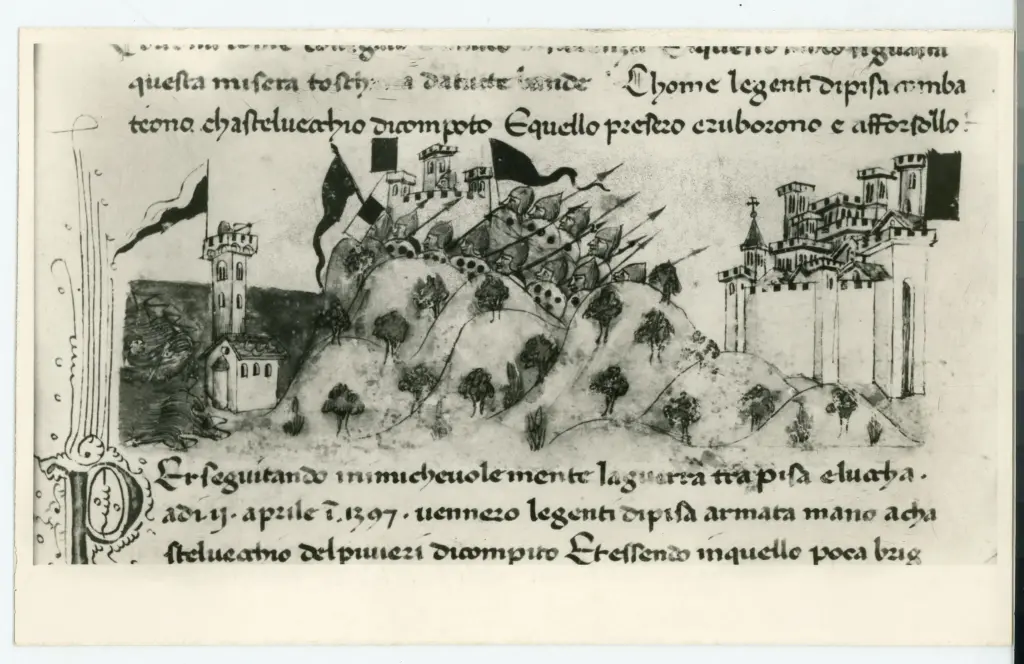 questa misera a da tucte bande Chome le genti di pisa comba
teono chastelvecchio di compoto Equello presero e ruborono e afforsollo
Perseguitando inimichevolemente la guerra tra pisa e luccha ·
adi · ij · aprile ī · 1397 · vennero le genti di pisa armata mano a cha
stelvecchio del pivieri di compito Et essendo in quello poca brig